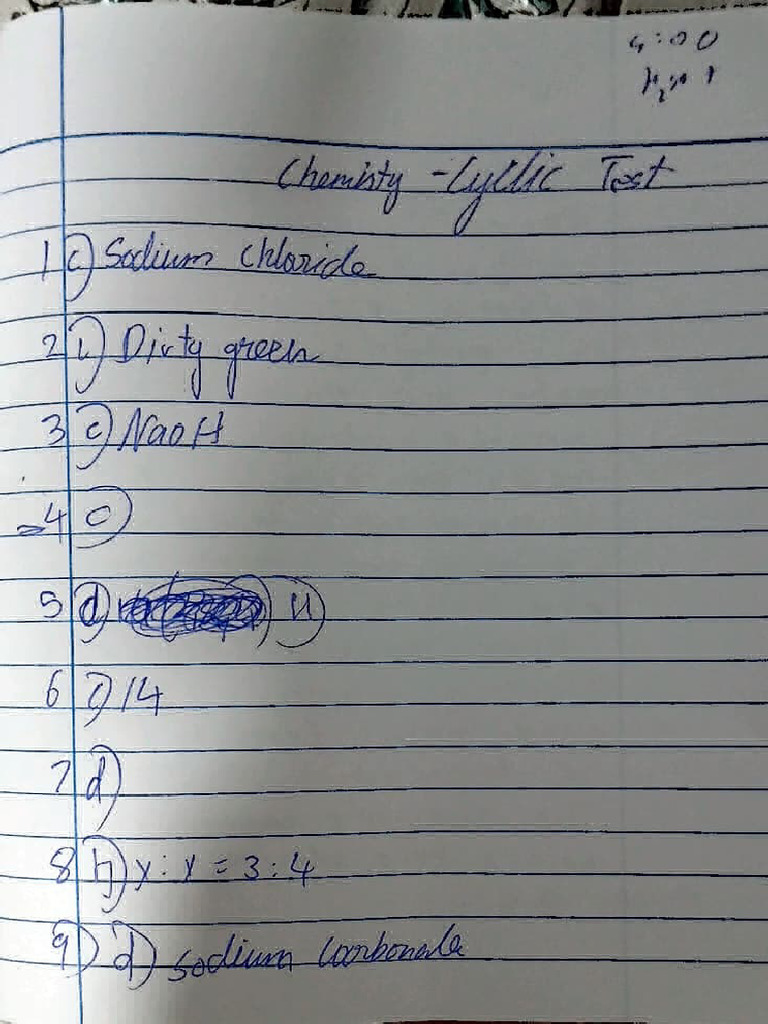 4:00
Chemisty - Cyclic Test
1 c) Sodium Chloride
2 b) Dirty green
3 c) NaOH
4 c)
5 d)
6 c) 14
7 d)
8 b) x : y = 3 : 4
9) d) sodium Carbonate